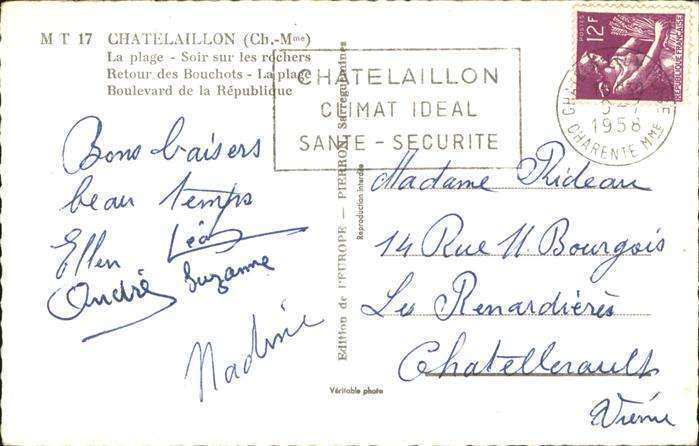 M T 17 CHATELAILLON (Ch.-Mme)
La plage - Soir sur les rochers
Retour des Bouchots - La plage
Boulevard de la République
CHATELAILLON
CLIMAT IDEAL
SANTE - SECURITE
POSTES
12F
REPUBLIQUE FRANÇAISE
1958
CHARENTE MME
Bons baisers
beau temps
Ellen Léa
André Suzanne
Nadine
Edition de l'EUROPE - PIERRON, Sarreguemines
Reproduction interdite
Véritable photo
Madame Rideau
14 Rue M. Bourgois
Les Renardières
Chatellerault
Vienne